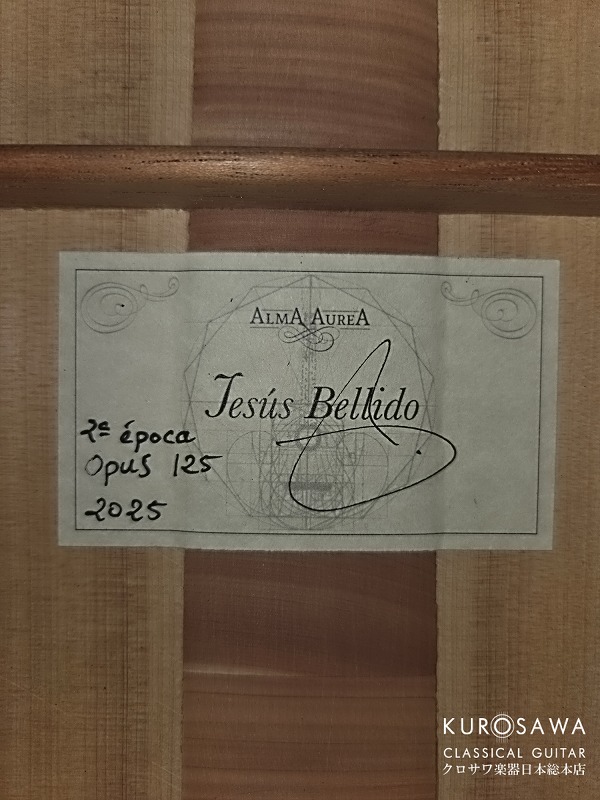 ALMA AUREA
Jesús Bellido
2ª época
Opus 125
2025
KUROSAWA
CLASSICAL GUITAR
クロサワ楽器日本総本店